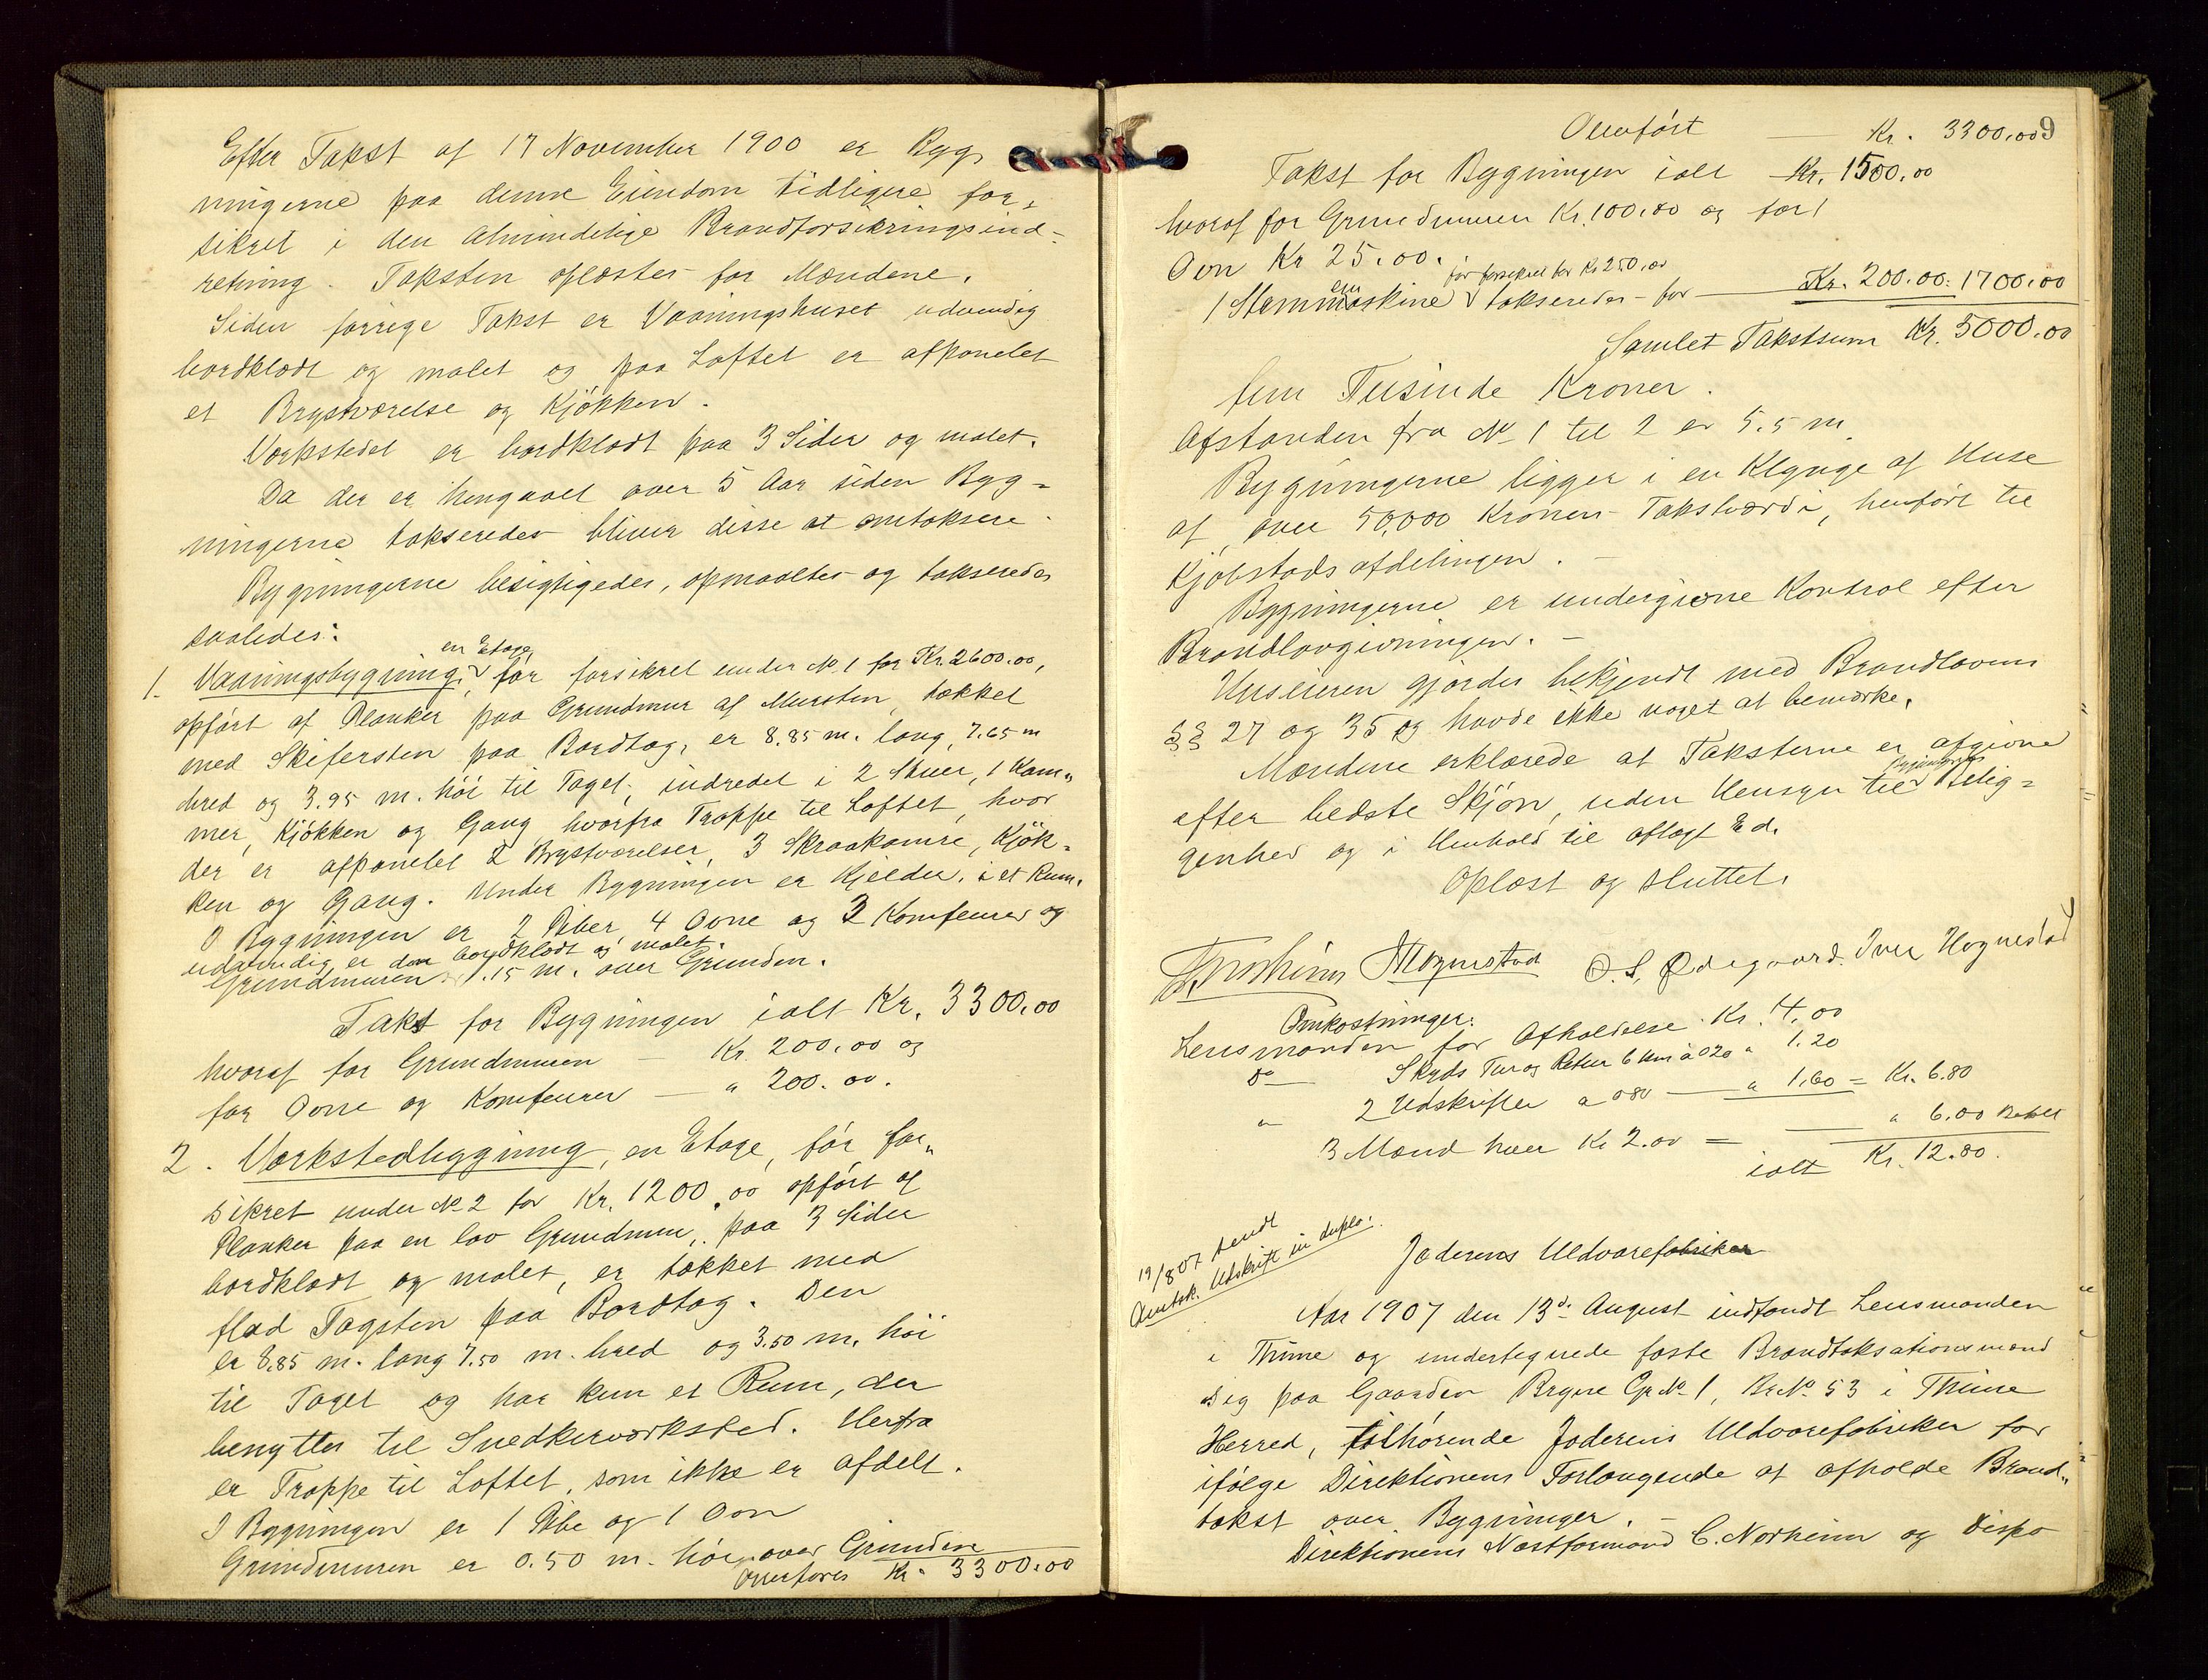 Efter Takst af 17 November 1900 er Byg-
ningerne paa denne Eiendom tidligere for-
sikret i den Almindelige Brandforsikringsind-
retning. Taksten oplæstes for Mændene.
Siden forrige Takst er Vaaningshuset udvendig
bordklædt og malet og paa Loftet er afpanelet
et Brystværelse og Kjøkken.
Værkstedet er bordklædt paa 3 Sider og malet.
Da der er hengaaet over 5 Aar siden Byg-
ningerne takseredes bliver disse at omtaksere.
Bygningerne besigtigedes, opmaaltes og takseredes
saaledes:
1. Vaaningsbygning, en Etage, før forsikret under No 1 for Kr. 2600.00,
opført af Planker paa Grundmur af Mursten, tækket
med Skifersten paa Bordtag, er 8.85 m. lang, 7.65 m
bred og 3.95 m. høi til Taget, indredet i 2 Stuer, 1 Kam-
mer, Kjøkken og Gang hvorfra Trappe til Loftet, hvor
der er afpanelet 2 Brystværelser, 3 Skraakamre, Kjøk-
ken og Gang. Under Bygningen er Kjelder, i et Rum.
I Bygningen er 2 Piber 4 Ovne og 2 Komfeurer og
udvendig er den bordklædt og malet.
Grundmuren 1.15 m. over Grunden.
Takst for Bygningen ialt Kr. 3300.00
hvoraf for Grundmuren — Kr. 200.00 og
for Ovne og Komfeurer — " 200.00.
2. Værkstedbygning, en Etage, før for-
sikret under No 2 for Kr. 1200.00 opført af
Planker paa en lav Grundmur, paa 3 Sider
bordklædt og malet, er tækket med
flad Tagsten paa Bordtag. Den
er 8.85 m. lang 7.50 m. bred og 3.50 m. høi
til Taget og har kun et Rum, der
benyttes til Snedkerværksted. Herfra
er Trappe til Loftet, som ikke er afdelt.
I Bygningen er 1 Pibe og 1 Ovn
Grundmuren er 0.50 m. høi over Grunden
Overføres Kr. 3300.00
9
Overført — Kr. 3300.00
Takst for Bygningen ialt Kr. 1500.00
hvoraf for Grundmuren Kr. 100.00 og for 1
Ovn Kr 25.00.
1 Stemmemaskine før forsikret for Kr 250.00 takseredes for — Kr. 200.00. 1700.00
Samlet Takstsum Kr. 5000.00
fem Tusinde Kroner.
Afstanden fra No 1 til 2 er 5.5 m.
Bygningerne ligger i en Klynge af Huse
af over 50,000 Kroners Takstværdi, henført til
Kjøbstadsafdelingen.
Bygningerne er undergivne Kontrol efter
Brandlovgivningen.
Huseieren gjordes bekjendt med Brandlovens
§§ 27 og 35 og havde ikke noget at bemærke.
Mændene erklærede at Taksterne er afgivne
efter bedste Skjøn, uden Hensyn til Bygningens Belig-
genhed og i Henhold til aflagt Ed.
Oplæst og sluttet.
O. S. Ødegaard. Iver Hognestad
Omkostninger:
Lensmanden for Afholdelse Kr. 4.00
Do — Skyds Tur og Retur 6 km a 020 " 1.20
" 2 Udskrifter a 080 — " 1.60 = Kr. 6.80
3 Mænd hver Kr 2.00 = — " 6.00 Betalt
ialt Kr. 12.80.
19/8 07 sendt
Amtsk. Udskrift in duplo.
Jæderens Uldvarefabriker
Aar 1907 den 13d. August indfandt Lensmanden
i Thime og undertegnede faste Brandtaksationsmænd
sig paa Gaarden Bryne Gr No 1, Br No 53 i Thime
Herred, tilhørende Jæderens Uldvarefabriker for
ifølge Direktionens Forlangende at afholde Brand-
takst over Bygninger.
Direktionens Næstformand C. Norheim og dispo